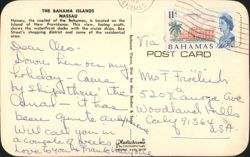 THE BAHAMA ISLANDS
NASSAU
Nassau, the capital of the Bahamas, is located on the
Island of New Providence. This view, facing south,
shows the waterfront docks with the cruise ships, Bay
Street's shopping district and some of the residential
area.
Dear Cleo-
Down here on my
holiday - Came
by ship thru the
Canal - it has
been quite
Will call you in
a couple of weeks
Love to you &
BAHAMAS
POST CARD
Via
Mrs T Froelich
5207
Woodland Hills
Calif 91364
USA